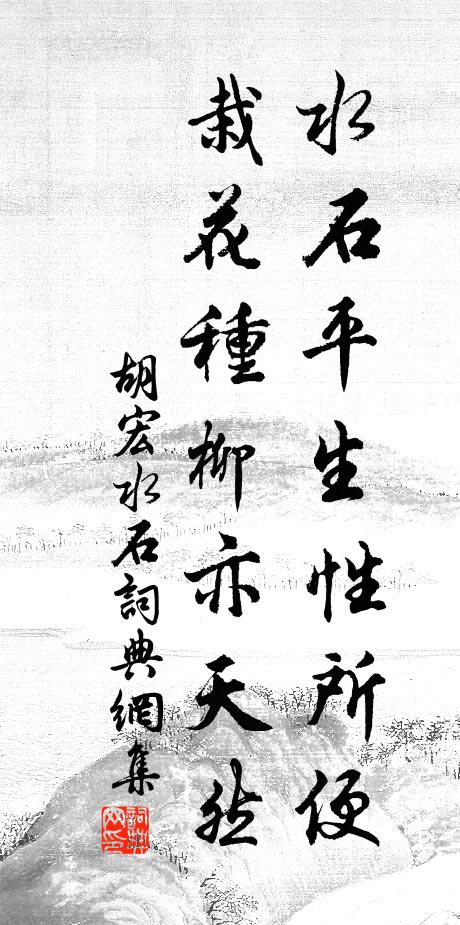 水石平生性所便
栽花種柳亦天然
胡宏水石詞典網集